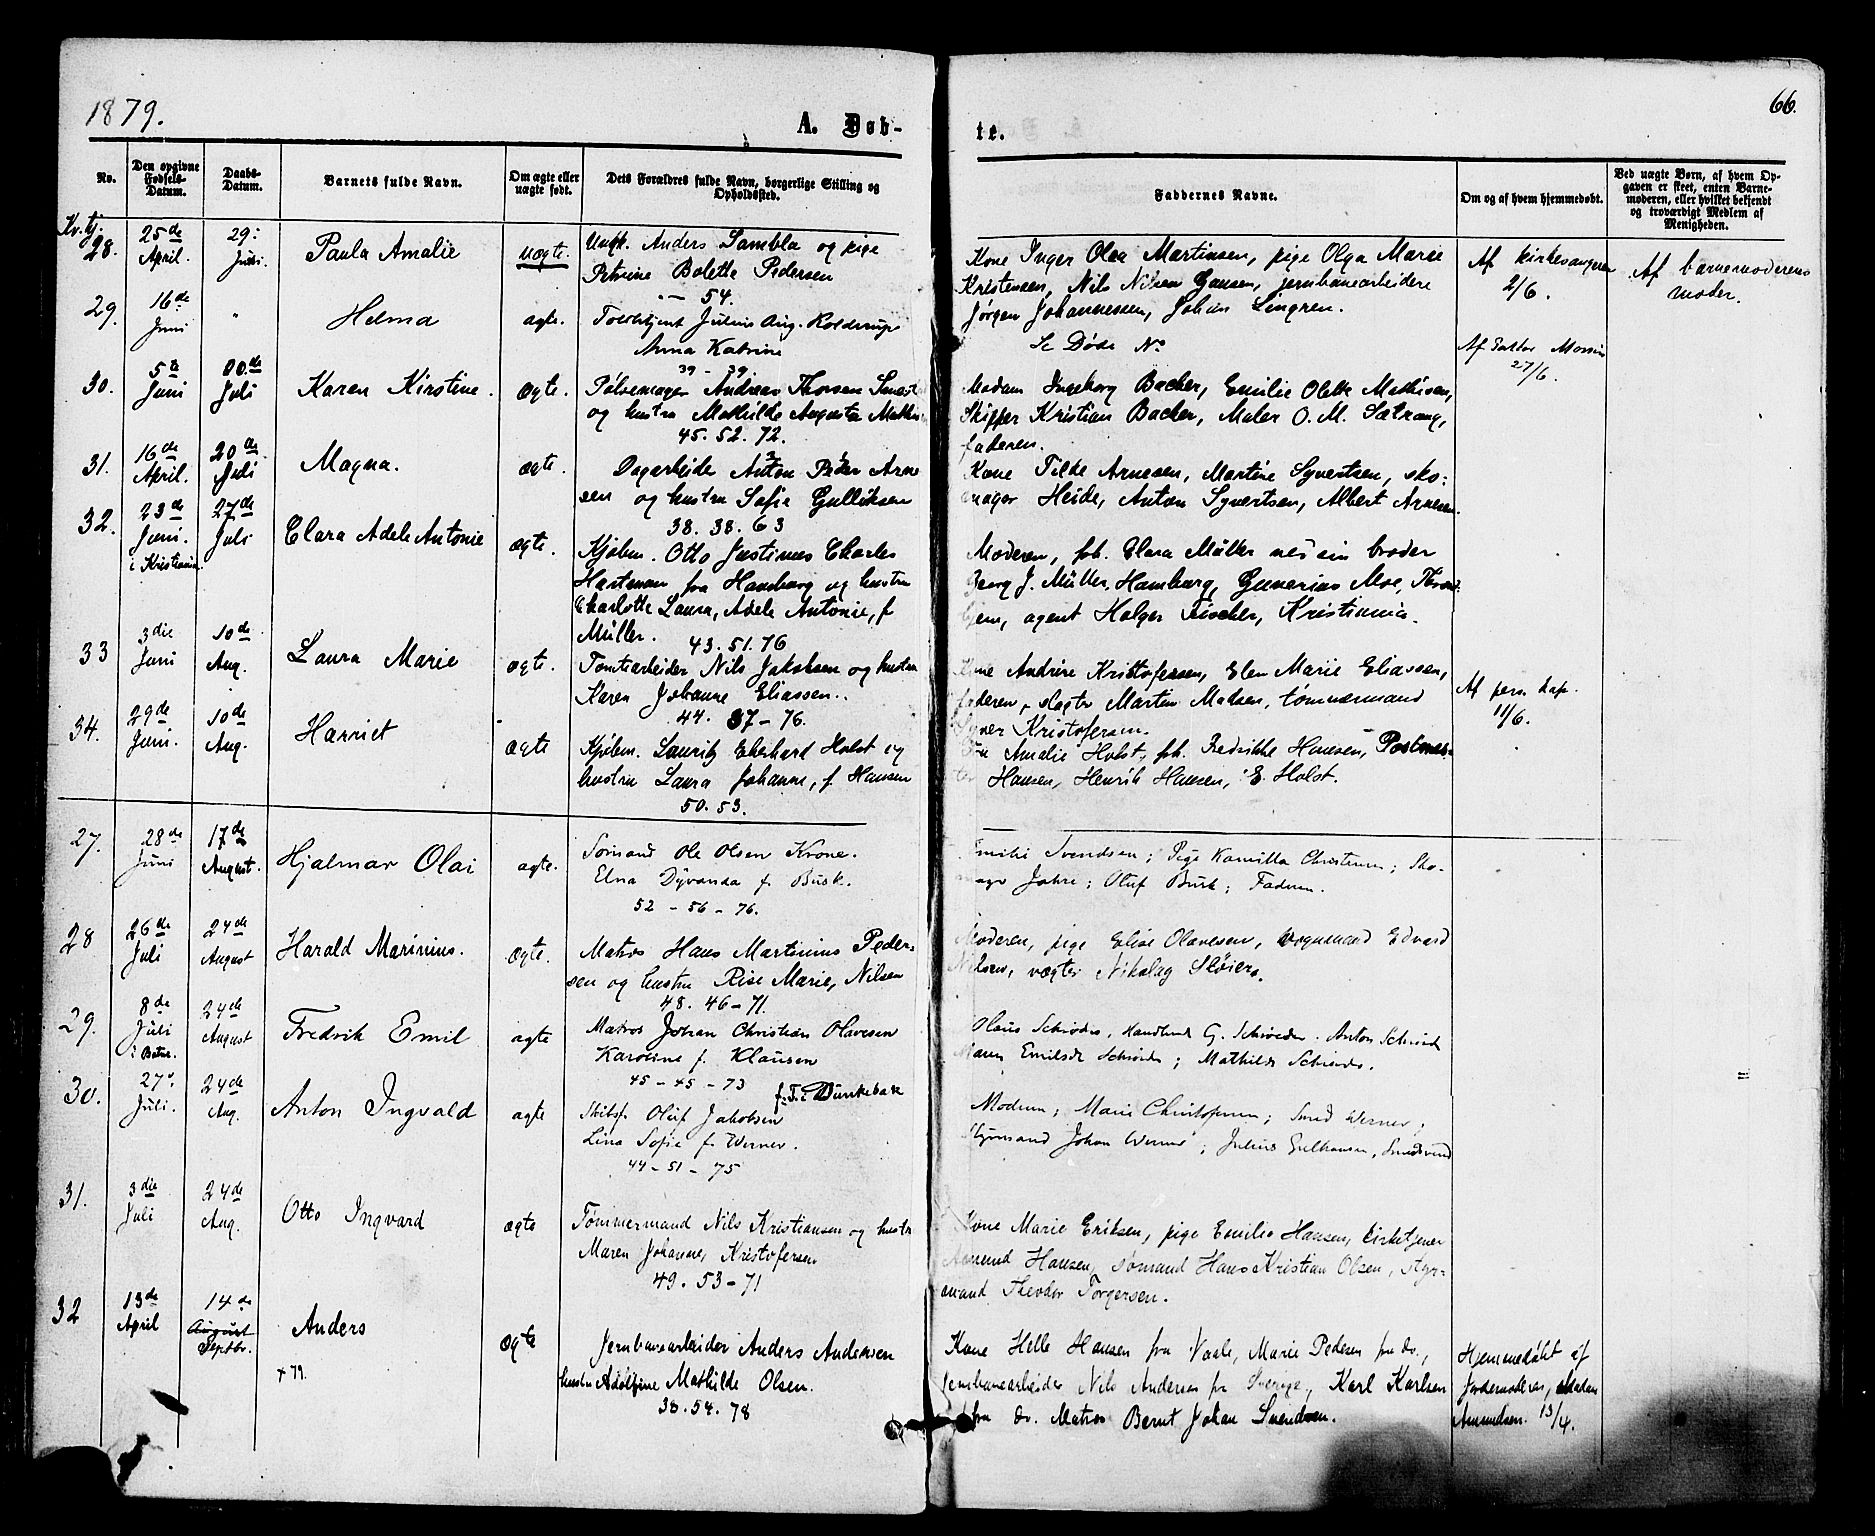 1879.
66.
A. Døb-
te.
No.
Den opgivne Fødsels-Datum.
Daabs-Datum.
Barnets fulde Navn.
Om ægte eller uægte født.
Dets Forældres fulde Navn, borgerlige Stilling og Opholdssted.
Faddernes Navne.
Om og af hvem hjemmedøbt.
Ved uægte Børn, af hvem Opgaven er skeet, enten Barnemoderen, eller hvilket bekjendt og troværdigt Medlem af Menigheden.
Kv.kj.
28. 25de April. 29: Juni. Paula Amalie uægte. Ungk. Anders Lambla og pige
Petrine Bolette Pedersen
54.
Kone Inger Olea Martinsen, pige Olga Marie
Kristensen, Nils Nilsen Gansen, jernbanearbeidere
Jørgen Johannessen, Johan Lingren.
Af kirkesangeren 2/6.
Af barnemoderens moder.
29. 16de Juni " Helma ægte. Toldbetjent Julius Aug. Kolderup
Anna Katrine
39 - 39.
Se Døde No
Af Pastor 27/6.
30. 5te Juni 20de Juli Karen Kirstine. ægte. Pølsemager Andreas Thorsen
og hustru Mathilde Augusta
45. 52. 72.
Madam Ingeborg Backer, Emilie Olette Mathisen,
Skipper Kristian Backer, Maler O. M. Sætrang,
faderen.
31. 16de April. 20de Juli Magna. ægte. Dagarbeide Anton Peder Arne
sen og hustru Sofie Gulliksen
38. 38. 63
Kone Tilde Arnesen, Martine Syvertsen, sko:
mager Heide, Anton Syvertsen, Albert Arnesen.
32. 23de Juni. i Kristiania. 27de Juli Clara Adele Antonie ægte. Kjøbm. Otto Justinus Charles
Hartmann fra Hamburg og hustru
Charlotte Laura, Adele Antonie, f
Müller. 43. 51. 76
Moderen, frk. Clara Müller
Georg J. Müller, Hamburg, Gunerius Moe, Thrond
hjem, agent Holger Fischer, Kristiania.
33 3die Juni 10de Aug. Laura Marie ægte. Tomtearbeider Nils Jakobsen og hustru
Karen Johanne Eliassen.
44. 37 - 76.
Kone Andrine Kristofersen, Elen Marie Eliassen,
faderen, slagter Martin Madsen, tømmermand
Syver Kristofersen.
Af pers. kap. 11/6.
34. 29de Juni. 10de Aug. Harriet ægte Kjøbm. Lauritz Ekehard Holst og
hustru Laura Johanne, f. Hansen
50. 53.
Fru Amalie Holst, frk. Fredrikke Hansen, Postmes-
ter Hansen, Henrik Hansen, E. Holst.
27. 28de Juni 17de August. Hjalmar Olai ægte. Sømand Ole Olsen Krone.
Elna Dyvanda f. Busk.
52 - 56 - 76.
Emilie Svendsen; Pige Kamilla Christensen; Sko-
mager Jahre; Oluf Busk; Faderen.
28 26de Juli 24de August Harald Marinius. ægte. Matros Hans Martinius Peder-
sen og hustru Rise Marie, Nilsen
48. 46 - 71.
Moderen, pige Elise Olavesen, vognmand Edvard
Nilsen, vægter Nikolay Sløier.
29. 8de Juli 24de August Fredrik Emil ægte Matros Johan Christian Olavesen
Karoline f. Klausen
45 - 45 - 73
Olaus Schrøder, G. Schrøder. Anton Schrøder
Maren Schrøder; Mathilde Schrøder.
30. 27. Juli. 24de Aug. Anton Ingvald ægte Skibsf. Oluf Jakobsen
Lina Sofie f. Werner.
44 - 51 - 75
Moderen; Marie Christofersen; Smed Werner;
Styrmand Johan Werner; Julius
31. 3die Juli 24de Aug. Otto Ingvard ægte Tømmermand Nils Kristiansen og hustru
Maren Johanne, Kristofersen
49. 53 - 71
Kone Marie Eriksen, pige Emilie Hansen, kirketjener
Hansen, sømand Hans Kristian Olsen, styr-
mand Theodor Torgersen.
32 13de April 14de August Septbr. Anders + 79. ægte Jernbanearbeider Anders Andersen
hustru Adolfine Mathilde Olsen.
38. 54. 78
Kone Helle Hansen fra Vaale, Marie Pedersen fra do.,
jernbanearbeider Nils Andersen fr Sverige, Karl Karlsen
fra do. Matros Bernt Johan Svendsen.
Hjemmedøbt af Jordemoderen, Madam Amundsen. 13/4.